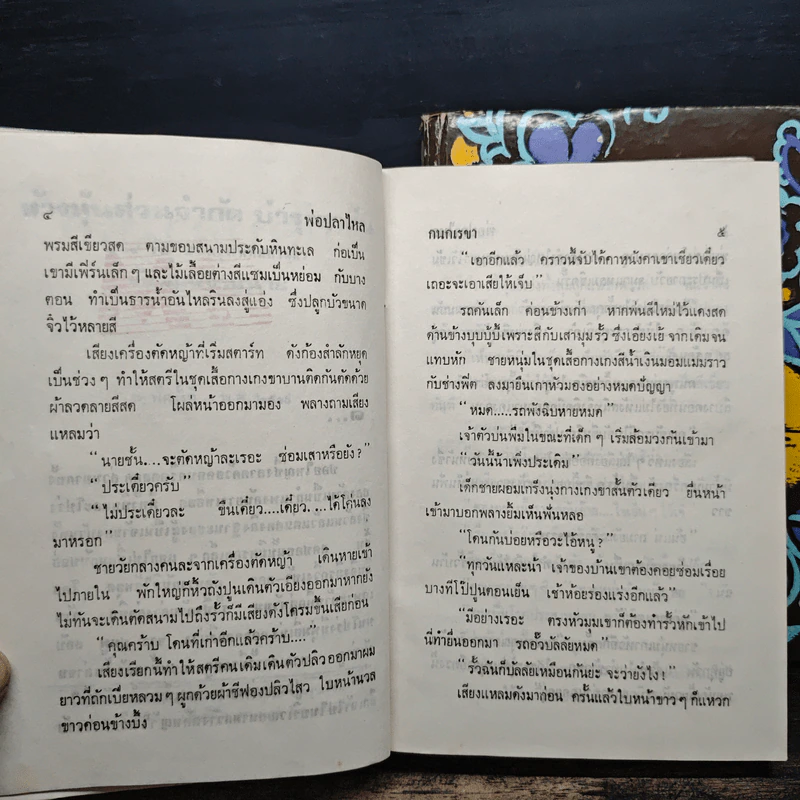 ๔ พ่อปลาไหล
พรมสีเขียวสด ตามขอบสนามประดับหินทะเล ก่อเป็น
เขามีเฟิร์นเล็ก ๆ และไม้เลื้อยต่างสีแซมเป็นหย่อม กับบาง
ตอน ทำเป็นธารน้ำอันไหลรินลงสู่แอ่ง ซึ่งปลูกบัวขนาด
จิ๋วไว้หลายสี
เสียงเครื่องตัดหญ้าที่เริ่มสตาร์ท ดังก้องสำลักหยุด
เป็นช่วง ๆ ทำให้สตรีในชุดเสื้อกางเกงขาบานติดกันตัดด้วย
ผ้าลวดลายสีสด โผล่หน้าออกมามอง พลางถามเสียง
แหลมว่า
“นายชั้น....จะตัดหญ้าละเรอะ ซ่อมเสาหรือยัง?”
“ประเดี๋ยวครับ”
“ไม่ประเดี๋ยวละ ขืนเดี๋ยว....เดี๋ยว. ...ได้โค่นลง
มาหรอก”
ชายวัยกลางคนละจากเครื่องตัดหญ้า เดินหายเข้า
ไปภายใน พักใหญ่ก็หิ้วถังปูนเดินตัวเอียงออกมาหากยัง
ไม่ทันจะเดินตัดสนามไปถึงรั้วก็มีเสียงดังโครมขึ้นเสียก่อน
“คุณคร้าบ โดนที่เก่าอีกแล้วคร้าบ....”
เสียงเรียกนี้ทำให้สตรีคนเดิมเดินตัวปลิวออกมาผม
ยาวที่ถักเปียหลวม ๆ ผูกด้วยผ้าชีฟองปลิวไสว ใบหน้านวล
ขาวค่อนข้างบึ้ง
กนกเรขา ๕
“เอาอีกแล้ว คราวนี้จับได้คาหนังคาเขาเชียวเดี๋ยว
เถอะจะเอาเสียให้เจ็บ”
รถคันเล็ก ค่อนข้างเก่า หากพ่นสีใหม่ไว้แดงสด
ด้านข้างบุบบู้บี้เพราะสีกับเสามุมรั้ว ซึ่งเอียงเย้ จากเดิมจน
แทบหัก ชายหนุ่มในชุดเสื้อกางเกงสีน้ำเงินมอมแมมราว
กับช่างฟิต ลงมายืนเกาหัวมองอย่างหมดปัญญา
“หมด.....รถพังฉิบหายหมด”
เจ้าตัวบ่นพึมในขณะที่เด็ก ๆ เริ่มล้อมวงกันเข้ามา
“วันนี้น้าเพิ่งประเดิม”
เด็กชายผอมเกร็งนุ่งกางเกงขาสั้นตัวเดียว ยื่นหน้า
เข้ามาบอกพลางยิ้มเห็นฟันหลอ
“โดนกันบ่อยหรือวะไอ้หนู?”
“ทุกวันแหละน้า เจ้าของบ้านเขาต้องคอยซ่อมเรื่อย
บางทีโป๊ปูนตอนเย็น เช้าห้อยร่องแร่งอีกแล้ว”
“มีอย่างเรอะ ตรงหัวมุมเขาก็ต้องทำรั้วหักเข้าไป
นี่ทำยื่นออกมา รถอั๊วบัลลัยหมด”
“รั้วฉันก็บัลลัยเหมือนกันย่ะ จะว่ายังไง!”
เสียงแหลมดังมาก่อน ครั้นแล้วใบหน้าขาว ๆ ก็แหวก